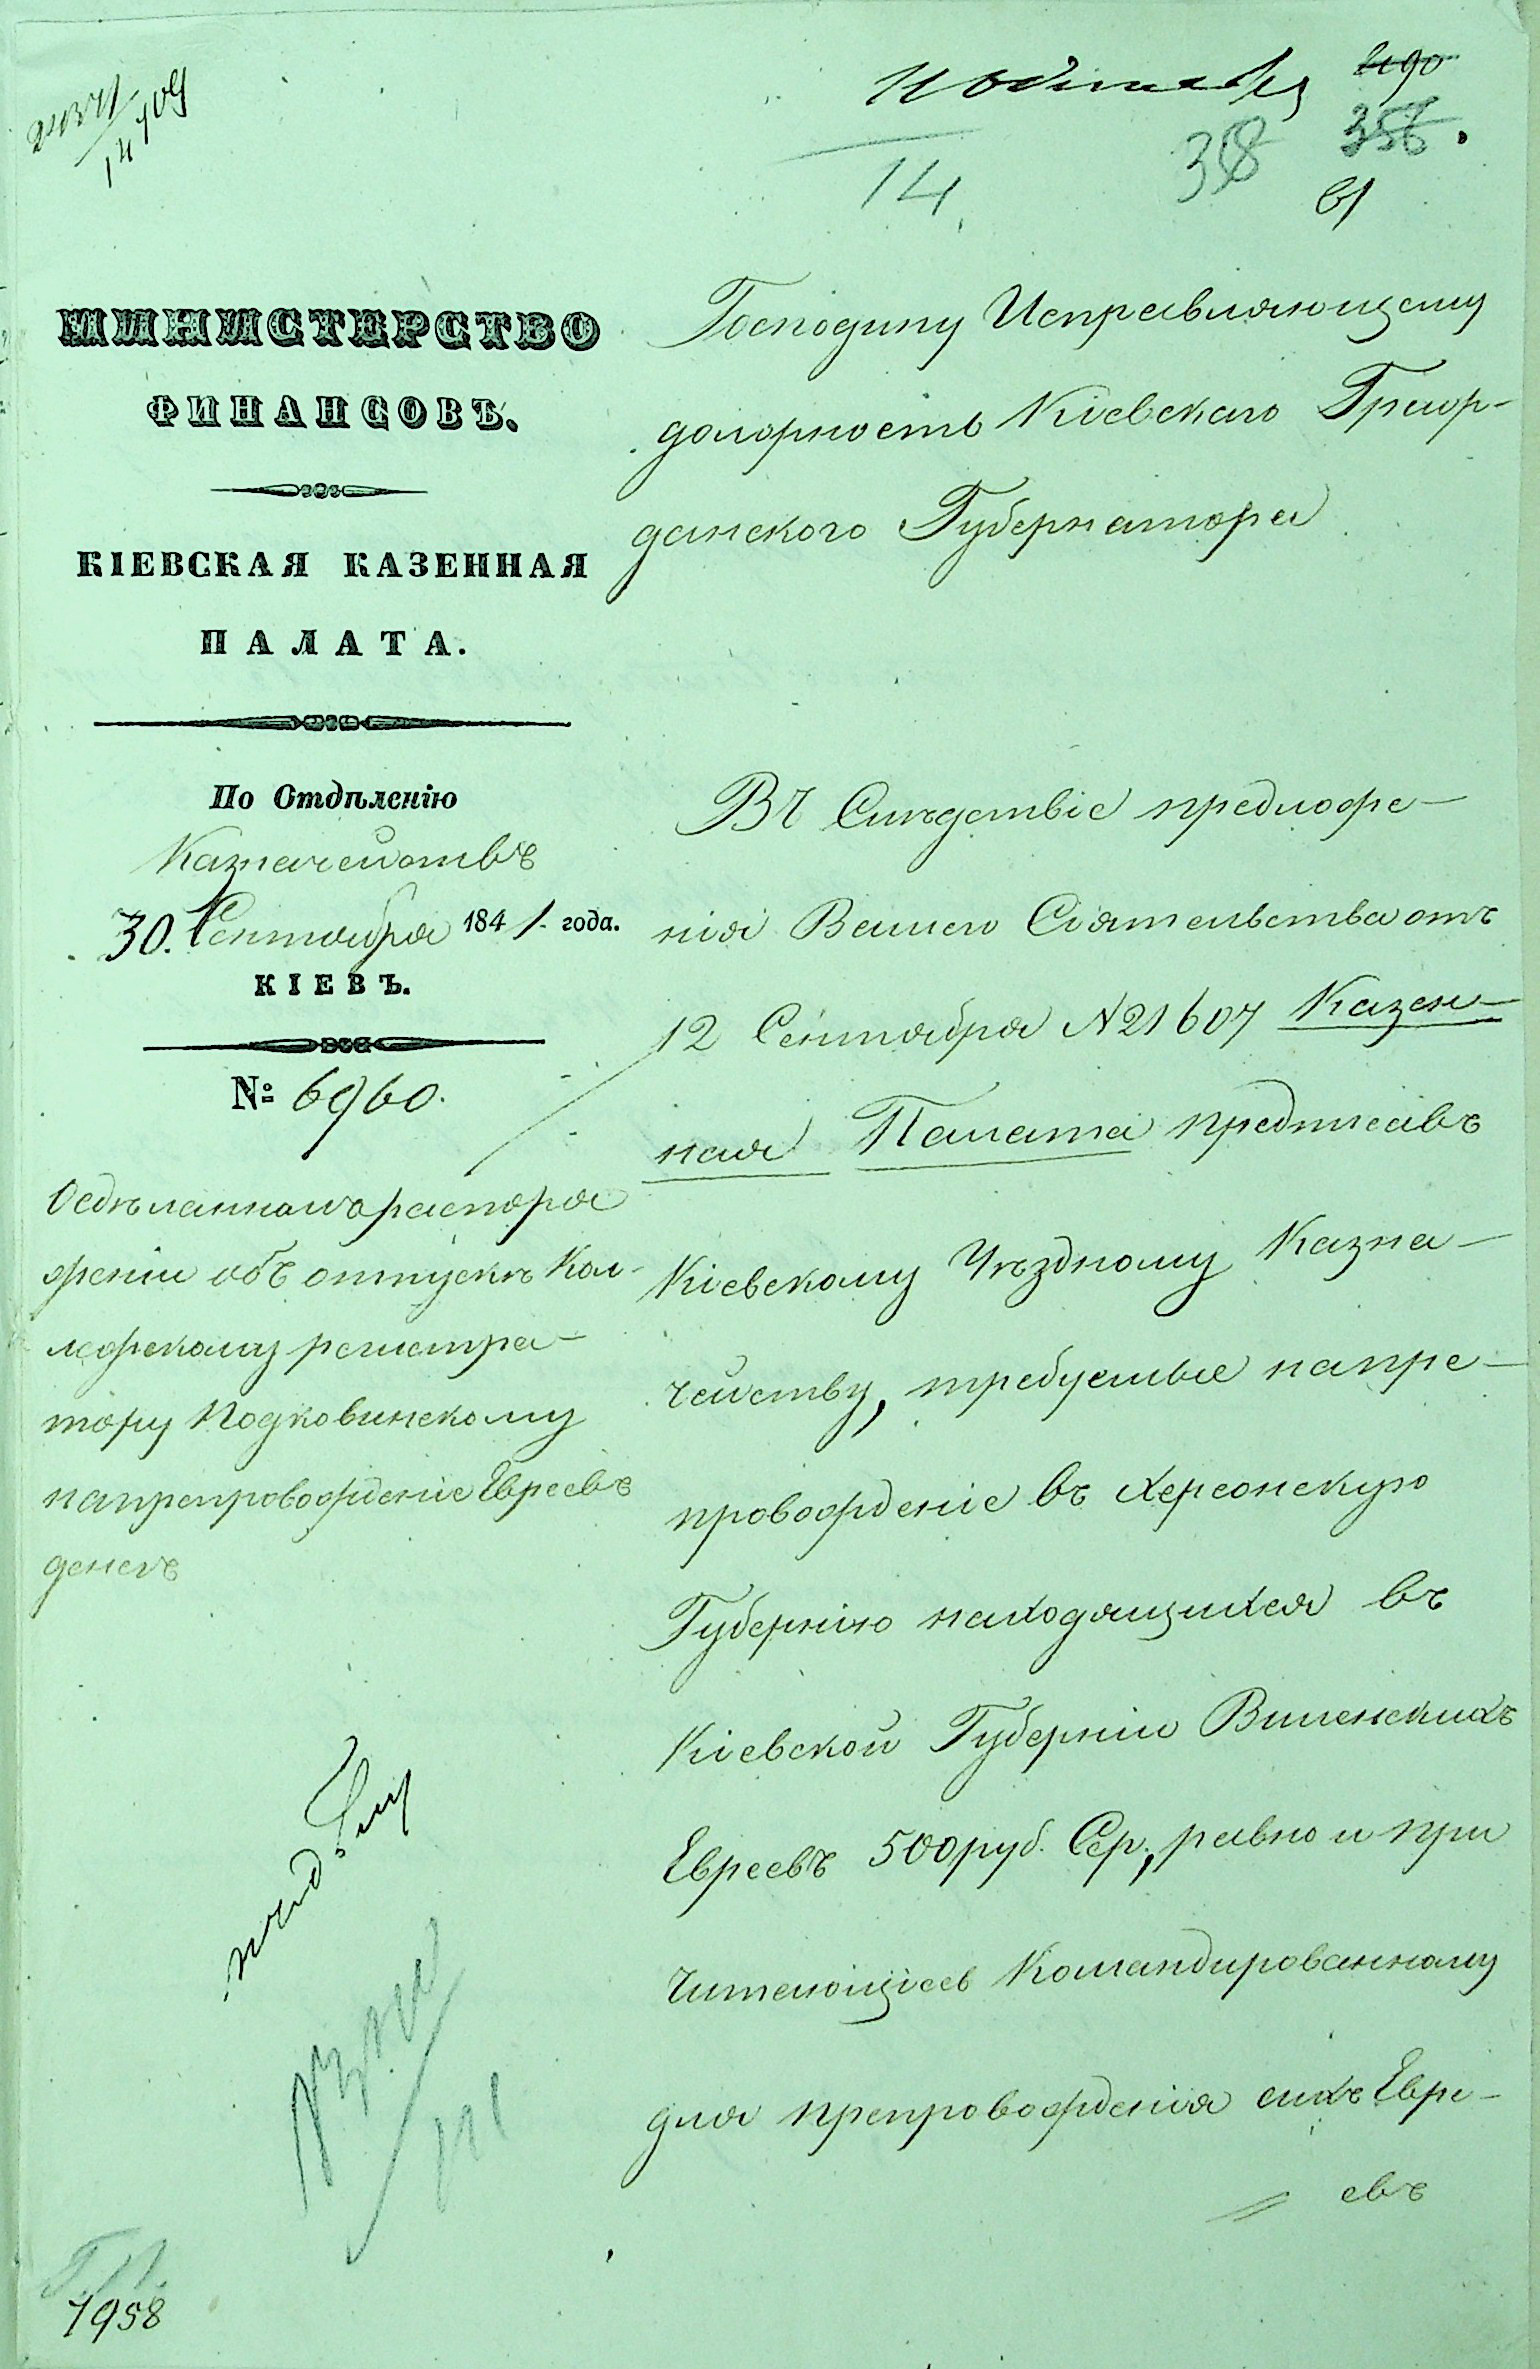 490
358
356.
14.
61
МИНИСТЕРСТВО
ФИНАНСОВЪ.
КІЕВСКАЯ КАЗЕННАЯ
ПАЛАТА.
По Отдѣленію
Казначействъ
30. Сентября 1841. года.
КІЕВЪ.
№ 6960.
О сдѣланномъ распоря
женіи объ отпускѣ Кол-
лежскому регистра-
тору Подковинскому
на препровожденіе Евреевъ
денегъ
Господину Исправляющему
должность Кіевскаго Граж-
данского Губернатора
Въ Слѣдствіе предложе-
нія Вашего Сіятельства отъ
12 Сентября №21607 Казен-
ная Палата предписавъ
Кіевскому Уѣздному Казна-
чейству, требуемые на пре-
провожденіе въ Херсонскую
Губернію находящихся въ
Кіевской Губерніи Виленскихъ
Евреевъ 500 руб. Сер., равно и при
читающіеся Командированному
для препровожденія сихъ Евре-
евъ
7958